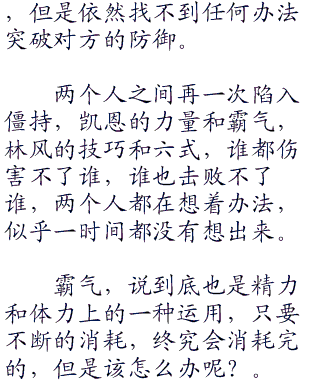 ，但是依然找不到任何办法
突破对方的防御。
两个人之间再一次陷入
僵持，凯恩的力量和霸气，
林风的技巧和六式，谁都伤
害不了谁，谁也击败不了
谁，两个人都在想着办法，
似乎一时间都没有想出来。
霸气，说到底也是精力
和体力上的一种运用，只要
不断的消耗，终究会消耗完
的，但是该怎么办呢？。